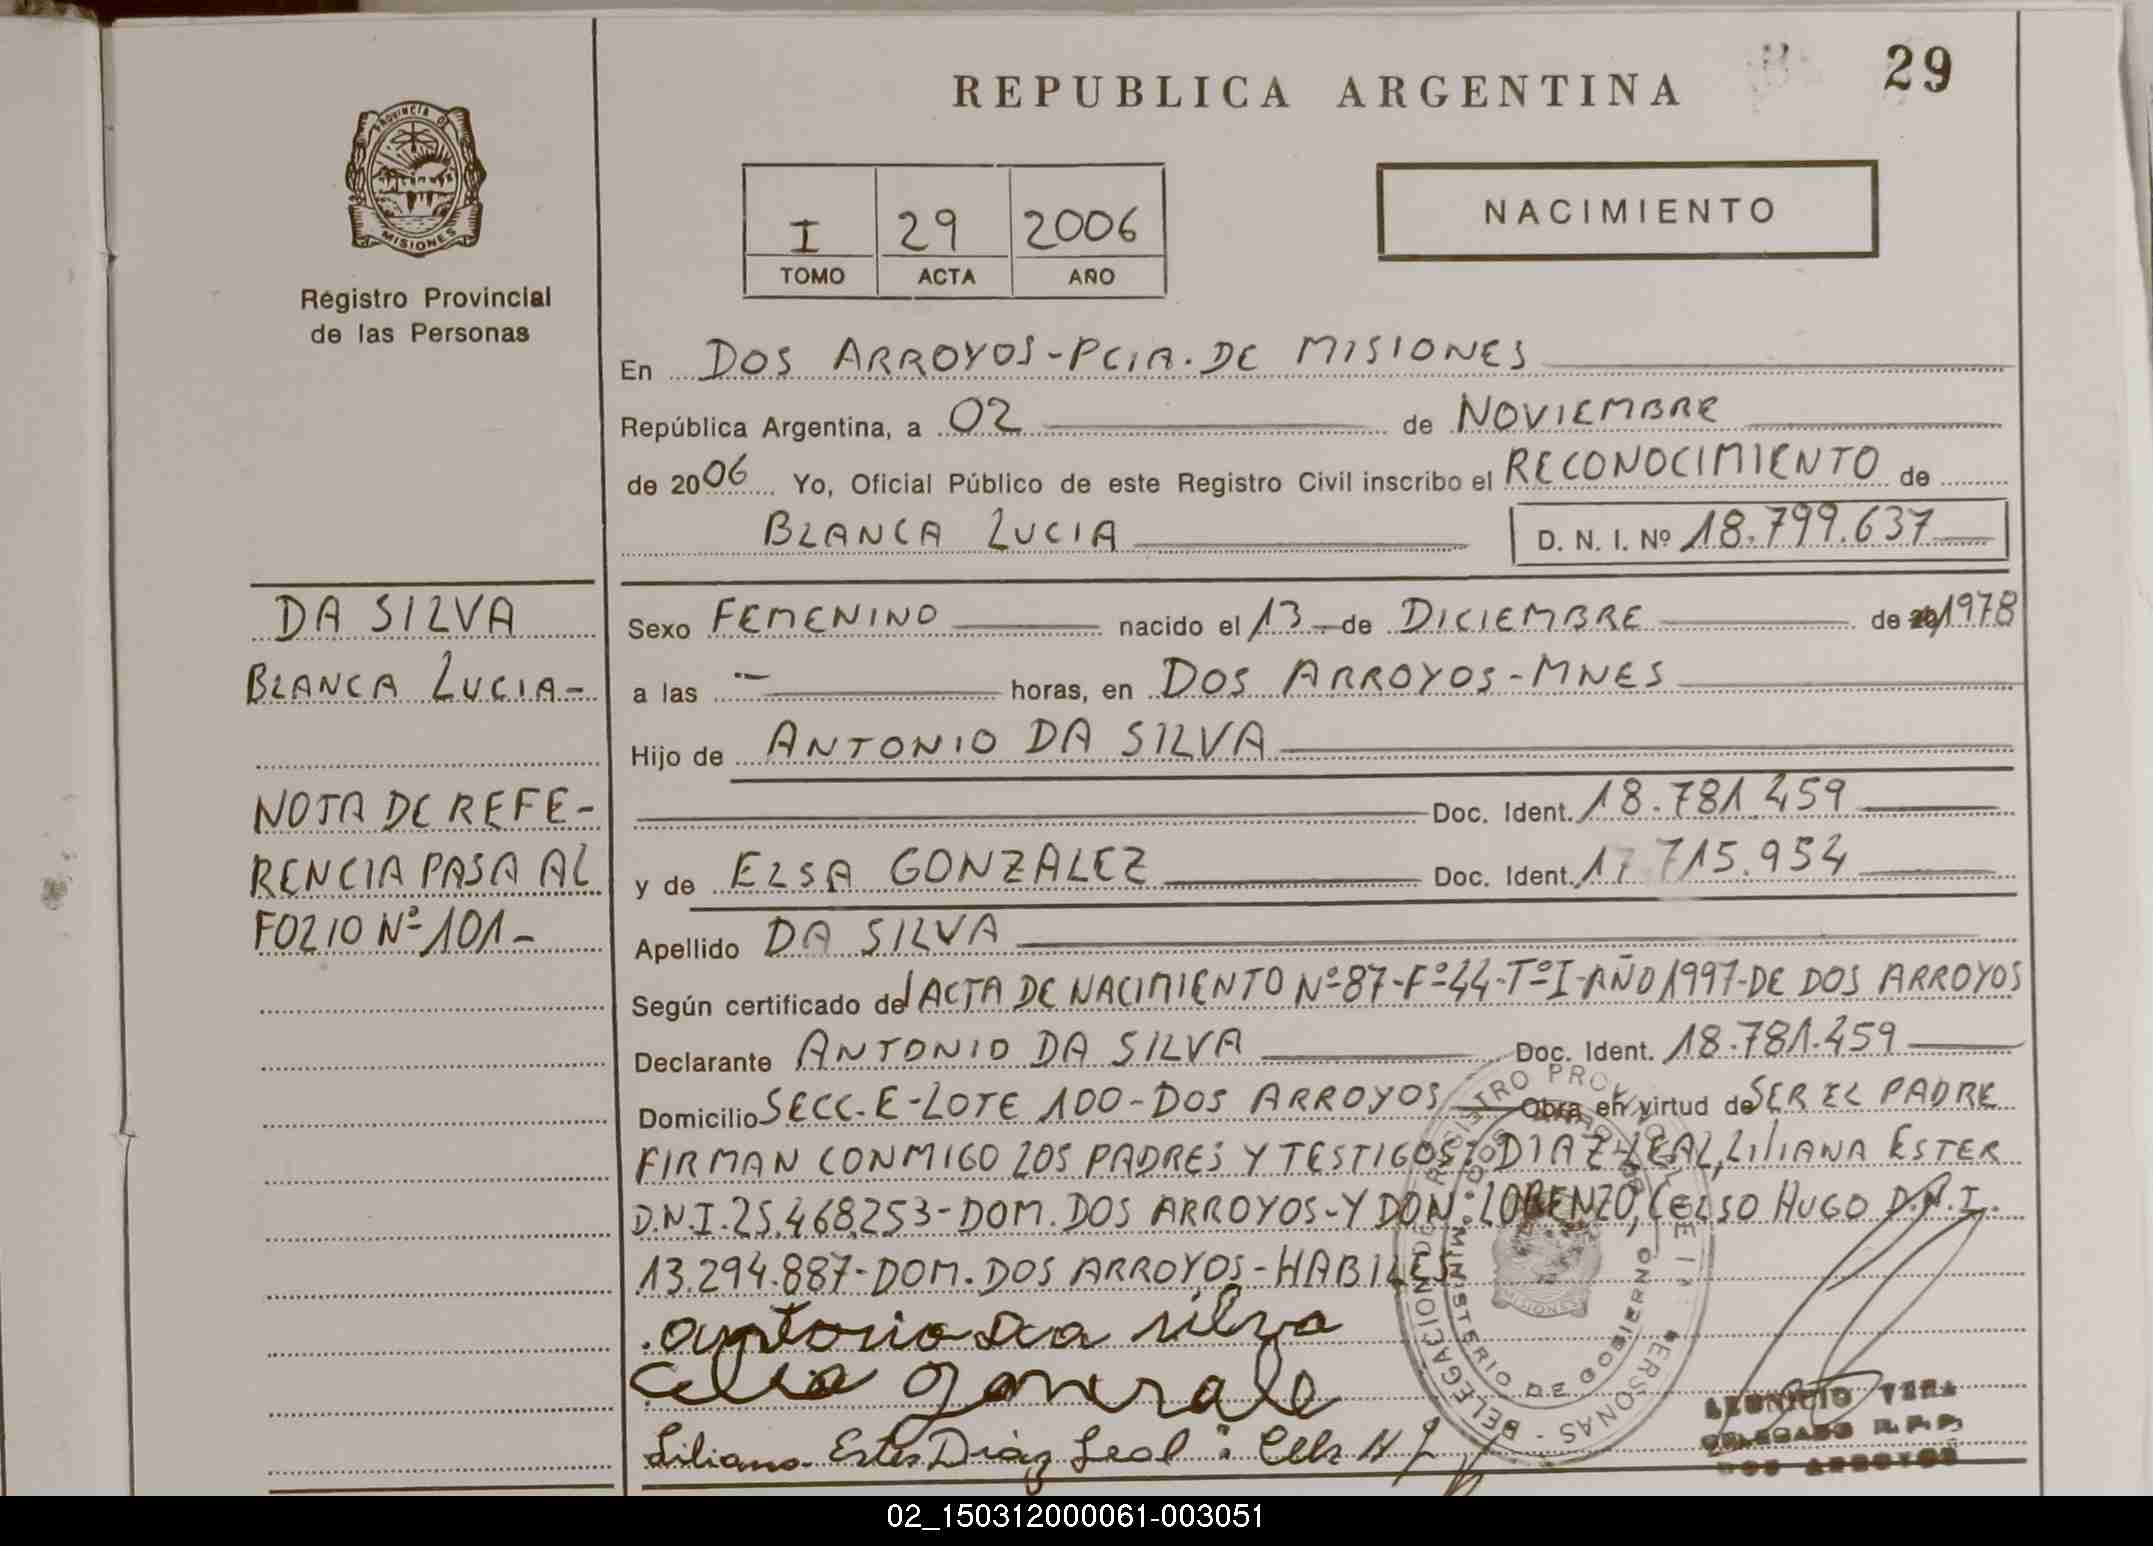 29
REPUBLICA ARGENTINA
PROVINCIA DE
MISIONES
Registro Provincial
de las Personas
I 29 2006
TOMO ACTA AÑO
NACIMIENTO
En DOS ARROYOS-PCIA. DE MISIONES
República Argentina, a 02 de NOVIEMBRE
de 2006 Yo, Oficial Público de este Registro Civil inscribo el RECONOCIMIENTO de
BLANCA LUCIA D. N. I. Nº 18.799.637
DA SILVA
BLANCA LUCIA-
NOTA DE REFE-
RENCIA PASA AL
FOLIO Nº 101-
Sexo FEMENINO nacido el 13 de DICIEMBRE de 1978
a las - horas, en DOS ARROYOS-MNES
Hijo de ANTONIO DA SILVA
Doc. Ident. 18.781.459
y de ELSA GONZALEZ Doc. Ident. 17.715.954
Apellido DA SILVA
Según certificado del ACTA DE NACIMIENTO Nº 87-Fº 44-Tº I-AÑO 1997-DE DOS ARROYOS
Declarante ANTONIO DA SILVA Doc. Ident. 18.781.459
Domicilio SECC. E-LOTE 100-DOS ARROYOS Obra en virtud de SER EL PADRE
FIRMAN CONMIGO LOS PADRES Y TESTIGOS: DIAZ LEAL, LILIANA ESTER
D.N.I. 25.468.253-DOM. DOS ARROYOS-Y DON: LORENZO, CELSO HUGO D.N.I.
13.294.887-DOM. DOS ARROYOS-HABILES
antonio da silva
Liliana Ester Diaz Leal
DELEGACION
MINISTERIO DE GOBIERNO
MISIONES
VERA
DELEGADO R.P.P.
DOS ARROYOS
02_150312000061-003051